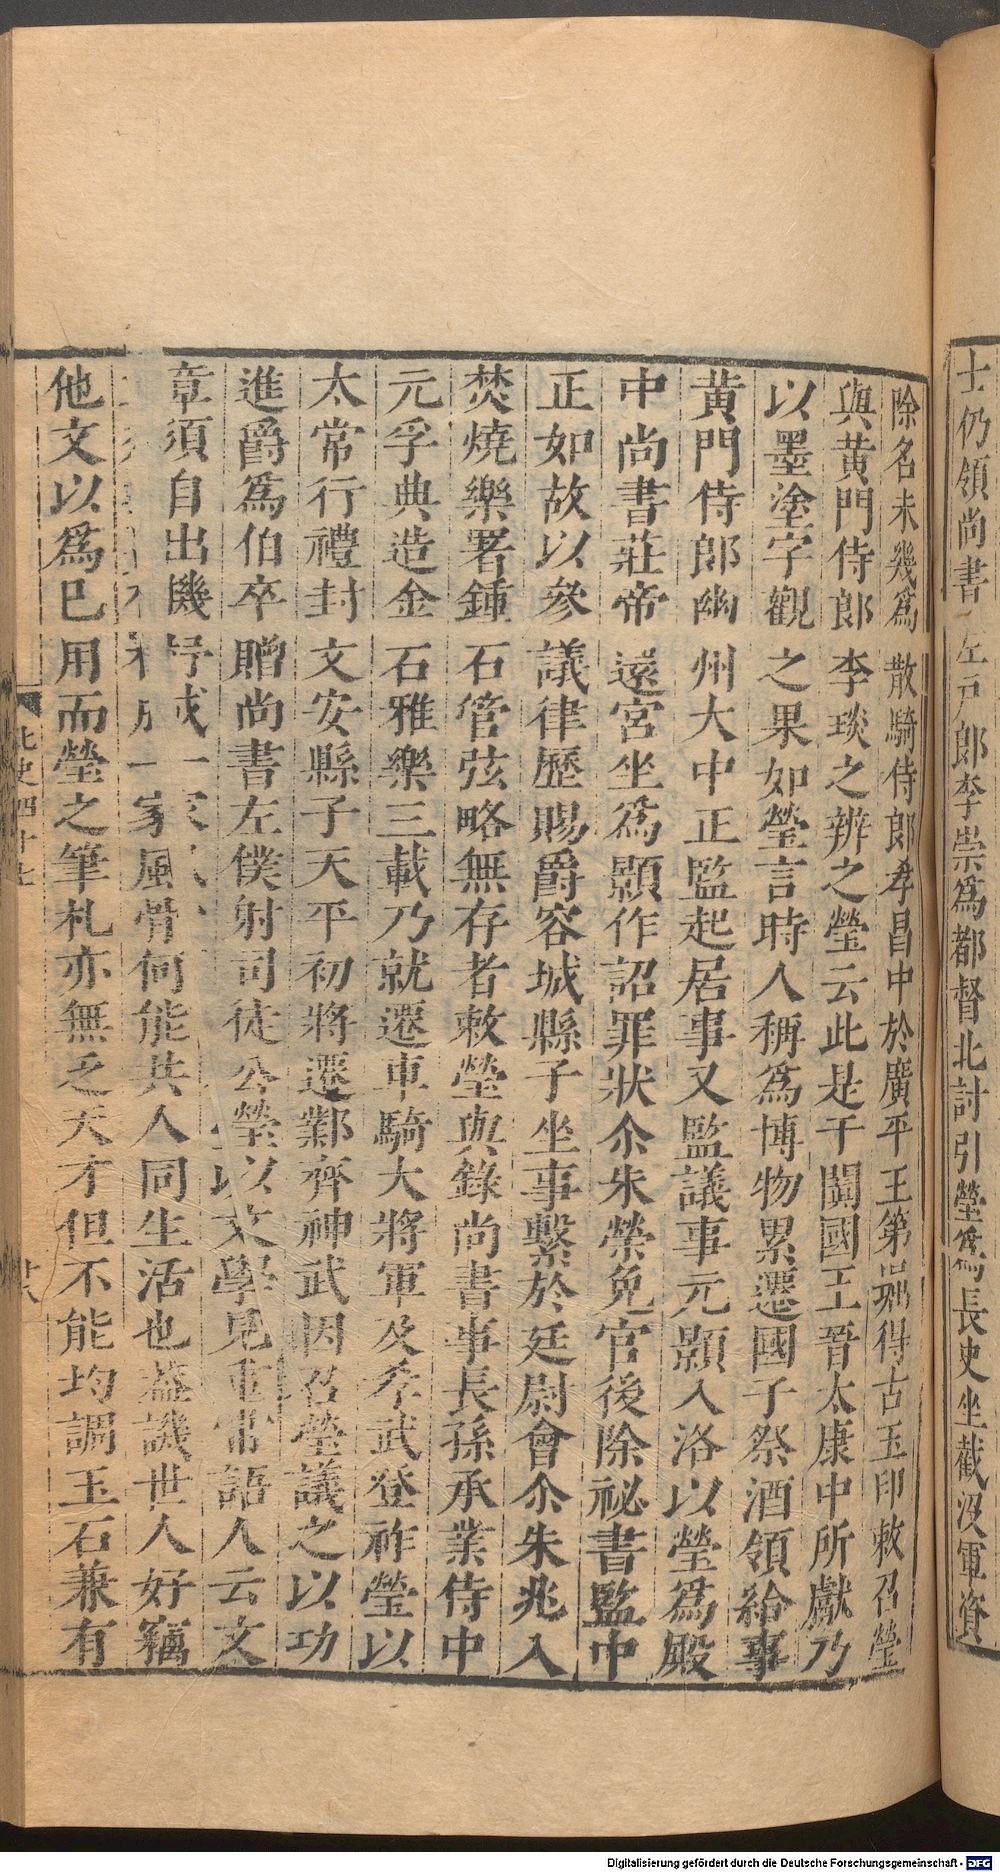 士仍領尚書左戶郎李崇為都督北討引瑩為長史坐截沒軍資
除名未幾為散騎侍郎孝昌中於廣平王第掘得古玉印敕召瑩
與黃門侍郎李琰之辨之瑩云此是于闐國王晉太康中所獻乃
以墨塗字觀之果如瑩言時人稱為博物累遷國子祭酒領給事
黃門侍郎幽州大中正監起居事又監議事元顥入洛以瑩為殿
中尚書莊帝還宮坐為顥作詔罪狀尒朱榮免官後除祕書監中
正如故以參議律歷賜爵容城縣子坐事繫於廷尉會尒朱兆入
焚燒樂署鍾石管弦略無存者敕瑩與錄尚書事長孫承業侍中
元孚典造金石雅樂三載乃就遷車騎大將軍及孝武登祚瑩以
太常行禮封文安縣子天平初將遷鄴齊神武因召瑩議之以功
進爵為伯卒贈尚書左僕射司徒公瑩以文學見重常語人云文
章須自出機杼成一家風骨何能共人同生活也蓋譏世人好竊
他文以為己用而瑩之筆札亦無乏天才但不能均調玉石兼有
北史四十七
廿八
Digitalisierung gefördert durch die Deutsche Forschungsgemeinschaft - DFG